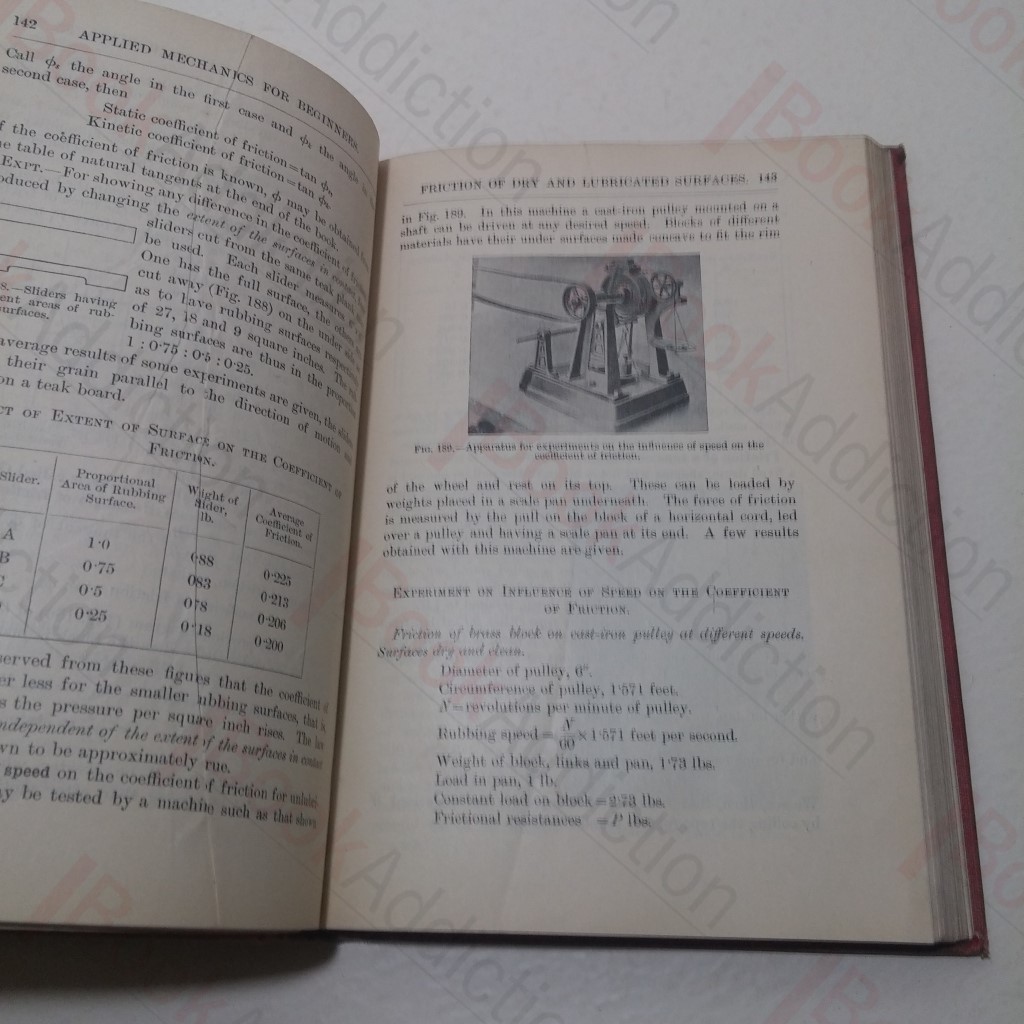 142
APPLIED MECHANICS FOR BEGINNERS.
Call ϕs the angle in the first case and ϕk the angle in
second case, then
Static coefficient of friction = tan ϕs.
Kinetic coefficient of friction = tan ϕk.
f the coefficient of friction is known, ϕ may be obtained
e table of natural tangents at the end of the book.
EXPT.—For showing any difference in the coefficient of
oduced by changing the extent of the surfaces in contact,
sliders cut from the same teak plank
be used. Each slider measures
One has the full surface, the
cut away (Fig. 188) on the under
as to have rubbing surfaces
of 27, 18 and 9 square inches. The
bing surfaces are thus in the proportion
1 : 0·75 : 0·5 : 0·25.
8.—Sliders having
ent areas of rub-
urfaces.
average results of some experiments are given, the
their grain parallel to the direction of motion
on a teak board.
CT OF EXTENT OF SURFACE ON THE COEFFICIENT OF
FRICTION.
Slider. Proportional Area of Rubbing Surface. Weight of Slider, lb. Average Coefficient of Friction.
A 1·0 0·225
B 0·75 0·213
C 0·5 0·206
0·25 0·200
served from these figures that the coefficient of
er less for the smaller rubbing surfaces, that is,
s the pressure per square inch rises. The
ndependent of the extent of the surfaces in contact
wn to be approximately true.
speed on the coefficient of friction for
y be tested by a machine such as that shown
FRICTION OF DRY AND LUBRICATED SURFACES. 143
in Fig. 189. In this machine a cast-iron pulley mounted on a
shaft can be driven at any desired speed. Blocks of different
materials have their under surfaces made concave to fit the rim
FIG. 189.—Apparatus for experiments on the influence of speed on the
coefficient of friction.
of the wheel and rest on its top. These can be loaded by
weights placed in a scale pan underneath. The force of friction
is measured by the pull on the block of a horizontal cord, led
over a pulley and having a scale pan at its end. A few results
obtained with this machine are given.
EXPERIMENT ON INFLUENCE OF SPEED ON THE COEFFICIENT
OF FRICTION.
Friction of brass block on cast-iron pulley at different speeds.
Surfaces dry and clean.
Diameter of pulley, 6".
Circumference of pulley, 1·571 feet.
N = revolutions per minute of pulley.
Rubbing speed = N/60 × 1·571 feet per second.
Weight of block, links and pan, 1·73 lbs.
Load in pan, 1 lb.
Constant load on block = 2·73 lbs.
Frictional resistances = P lbs.